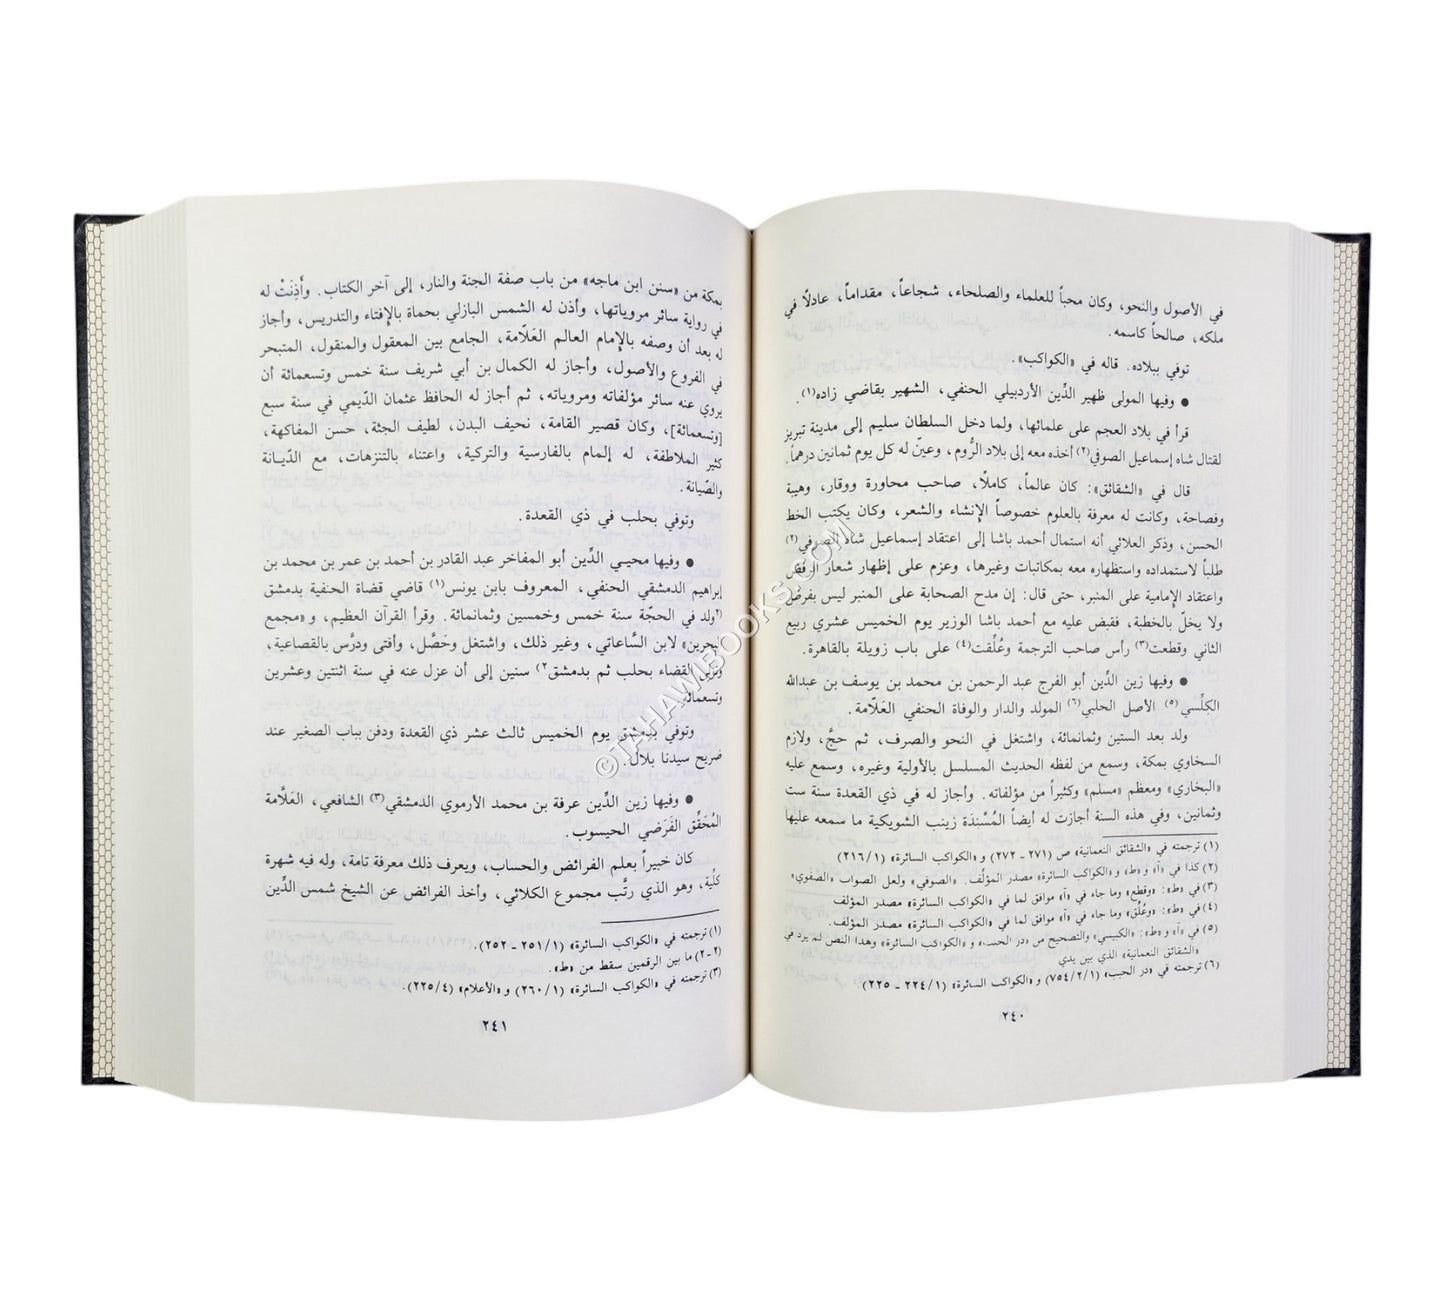 في الأصول والنحو، وكان محباً للعلماء والصلحاء، شجاعاً، مقداماً، عادلًا في
ملكه، صالحاً كاسمه.
توفي ببلاده. قاله في «الكواكب».
● وفيها المولى ظهير الدِّين الأردبيلي الحنفي، الشهير بقاضي زاده(١).
قرأ في بلاد العجم على علمائها، ولما دخل السلطان سليم إلى مدينة تبريز
لقتال شاه إسماعيل الصوفي(٢) أخذه معه إلى بلاد الرُّوم، وعينّ له كل يوم ثمانين درهماً.
قال في «الشقائق»: كان عالماً، كاملًا، صاحب محاورة ووقار، وهيبة
وفصاحة، وكانت له معرفة بالعلوم خصوصاً الإنشاء والشعر، وكان يكتب الخط
الحسن، وذكر العلائي أنه استمال أحمد باشا إلى اعتقاد إسماعيل شاه الصوفي(٢)
طلباً لاستمداده واستظهاره معه بمكاتبات وغيرها، وعزم على إظهار شعار الرفض
واعتقاد الإمامية على المنبر، حتى قال: إن مدح الصحابة على المنبر ليس بفرض
ولا يخلّ بالخطبة، فقبض عليه مع أحمد باشا الوزير يوم الخميس عشري ربيع
الثاني وقطعت(٣) رأس صاحب الترجمة وعُلِّقت(٤) على باب زويلة بالقاهرة.
● وفيها زين الدِّين أبو الفرج عبد الرحمن بن محمد بن يوسف بن عبدالله
الكِلْسي(٥) الأصل الحلبي(٦) المولد والدار والوفاة الحنفي العَلّامة.
ولد بعد الستين وثمانمائة، واشتغل في النحو والصرف، ثم حجَّ، ولازم
السخاوي بمكة، وسمع من لفظه الحديث المسلسل بالأولية وغيره، وسمع عليه
«البخاري» ومعظم «مسلم» وكثيراً من مؤلفاته. وأجاز له في ذي القعدة سنة ست
وثمانين، وفي هذه السنة أجازت له أيضاً المُسْنِدَة زينب الشويكية ما سمعه عليها
(١) ترجمته في «الشقائق النعمانية» ص (٢٧١ - ٢٧٢) و «الكواكب السائرة» (١/٢١٦)
(٢) كذا في «آ» و «ط» و «الكواكب السائرة» مصدر المؤلِّف. «الصوفي» ولعل الصواب «الصفوي»
(٣) في «ط»: «وقطع» وما جاء في «آ» موافق لما في «الكواكب السائرة» مصدر المؤلف
(٤) في «ط»: «وعُلِّق» وما جاء في «آ» موافق لما في «الكواكب السائرة» مصدر المؤلف.
(٥) في «آ» و «ط»: «الكبيسي» والتصحيح من «در الحبب» و «الكواكب السائرة» وهذا النص لم يرد في
«الشقائق النعمانية» الذي بين يدي
(٦) ترجمته في «در الحبب» (١/٢/٧٥٤) و «الكواكب السائرة» (١/٢٢٤ - ٢٢٥).
٢٤٠
بمكة من «سنن ابن ماجه» من باب صفة الجنة والنار، إلى آخر الكتاب. وأَذِنَتْ له
في رواية سائر مروياتها، وأذن له الشمس البازلي بحماة بالإفتاء والتدريس، وأجاز
له بعد أن وصفه بالإمام العالم العَلّامة، الجامع بين المعقول والمنقول، المتبحر
في الفروع والأصول، وأجاز له الكمال بن أبي شريف سنة خمس وتسعمائة أن
يروي عنه سائر مؤلفاته ومروياته، ثم أجاز له الحافظ عثمان الدِّيمي في سنة سبع
[وتسعمائة]، وكان قصير القامة، نحيف البدن، لطيف الجثة، حسن المفاكهة،
كثير الملاطفة، له إلمام بالفارسية والتركية، واعتناء بالتنزهات، مع الدِّيانة
والصِّيانة.
وتوفي بحلب في ذي القعدة.
● وفيها محيي الدِّين أبو المفاخر عبد القادر بن أحمد بن عمر بن محمد بن
إبراهيم الدمشقي الحنفي، المعروف بابن يونس(١) قاضي قضاة الحنفية بدمشق
٢ولد في الحجّة سنة خمس وخمسين وثمانمائة. وقرأ القرآن العظيم، و «مجمع
البحرين» لابن السَّاعاتي، وغير ذلك، واشتغل وحَصَّل، وأفتى ودرَّس بالقصاعية،
وتولى القضاء بحلب ثم بدمشق٢) سنين إلى أن عزل عنه في سنة اثنتين وعشرين
وتسعمائة.
وتوفي بدمشق يوم الخميس ثالث عشر ذي القعدة ودفن بباب الصغير عند
ضريح سيدنا بلال.
● وفيها زين الدِّين عرفة بن محمد الأرموي الدمشقي(٣) الشافعي، العَلَّامة
المُحَقِّق الفَرَضي الحيسوب.
كان خبيراً بعلم الفرائض والحساب، ويعرف ذلك معرفة تامة، وله فيه شهرة
كلّية، وهو الذي رتَّب مجموع الكلائي، وأخذ الفرائض عن الشيخ شمس الدِّين
(١) ترجمته في «الكواكب السائرة» (١/٢٥١ - ٢٥٢).
(٢-٢) ما بين الرقمين سقط من «ط».
(٣) ترجمته في «الكواكب السائرة» (١/٢٦٠) و «الأعلام» (٤/٢٢٥).
٢٤١
© TAHAWIBOOKS.COM